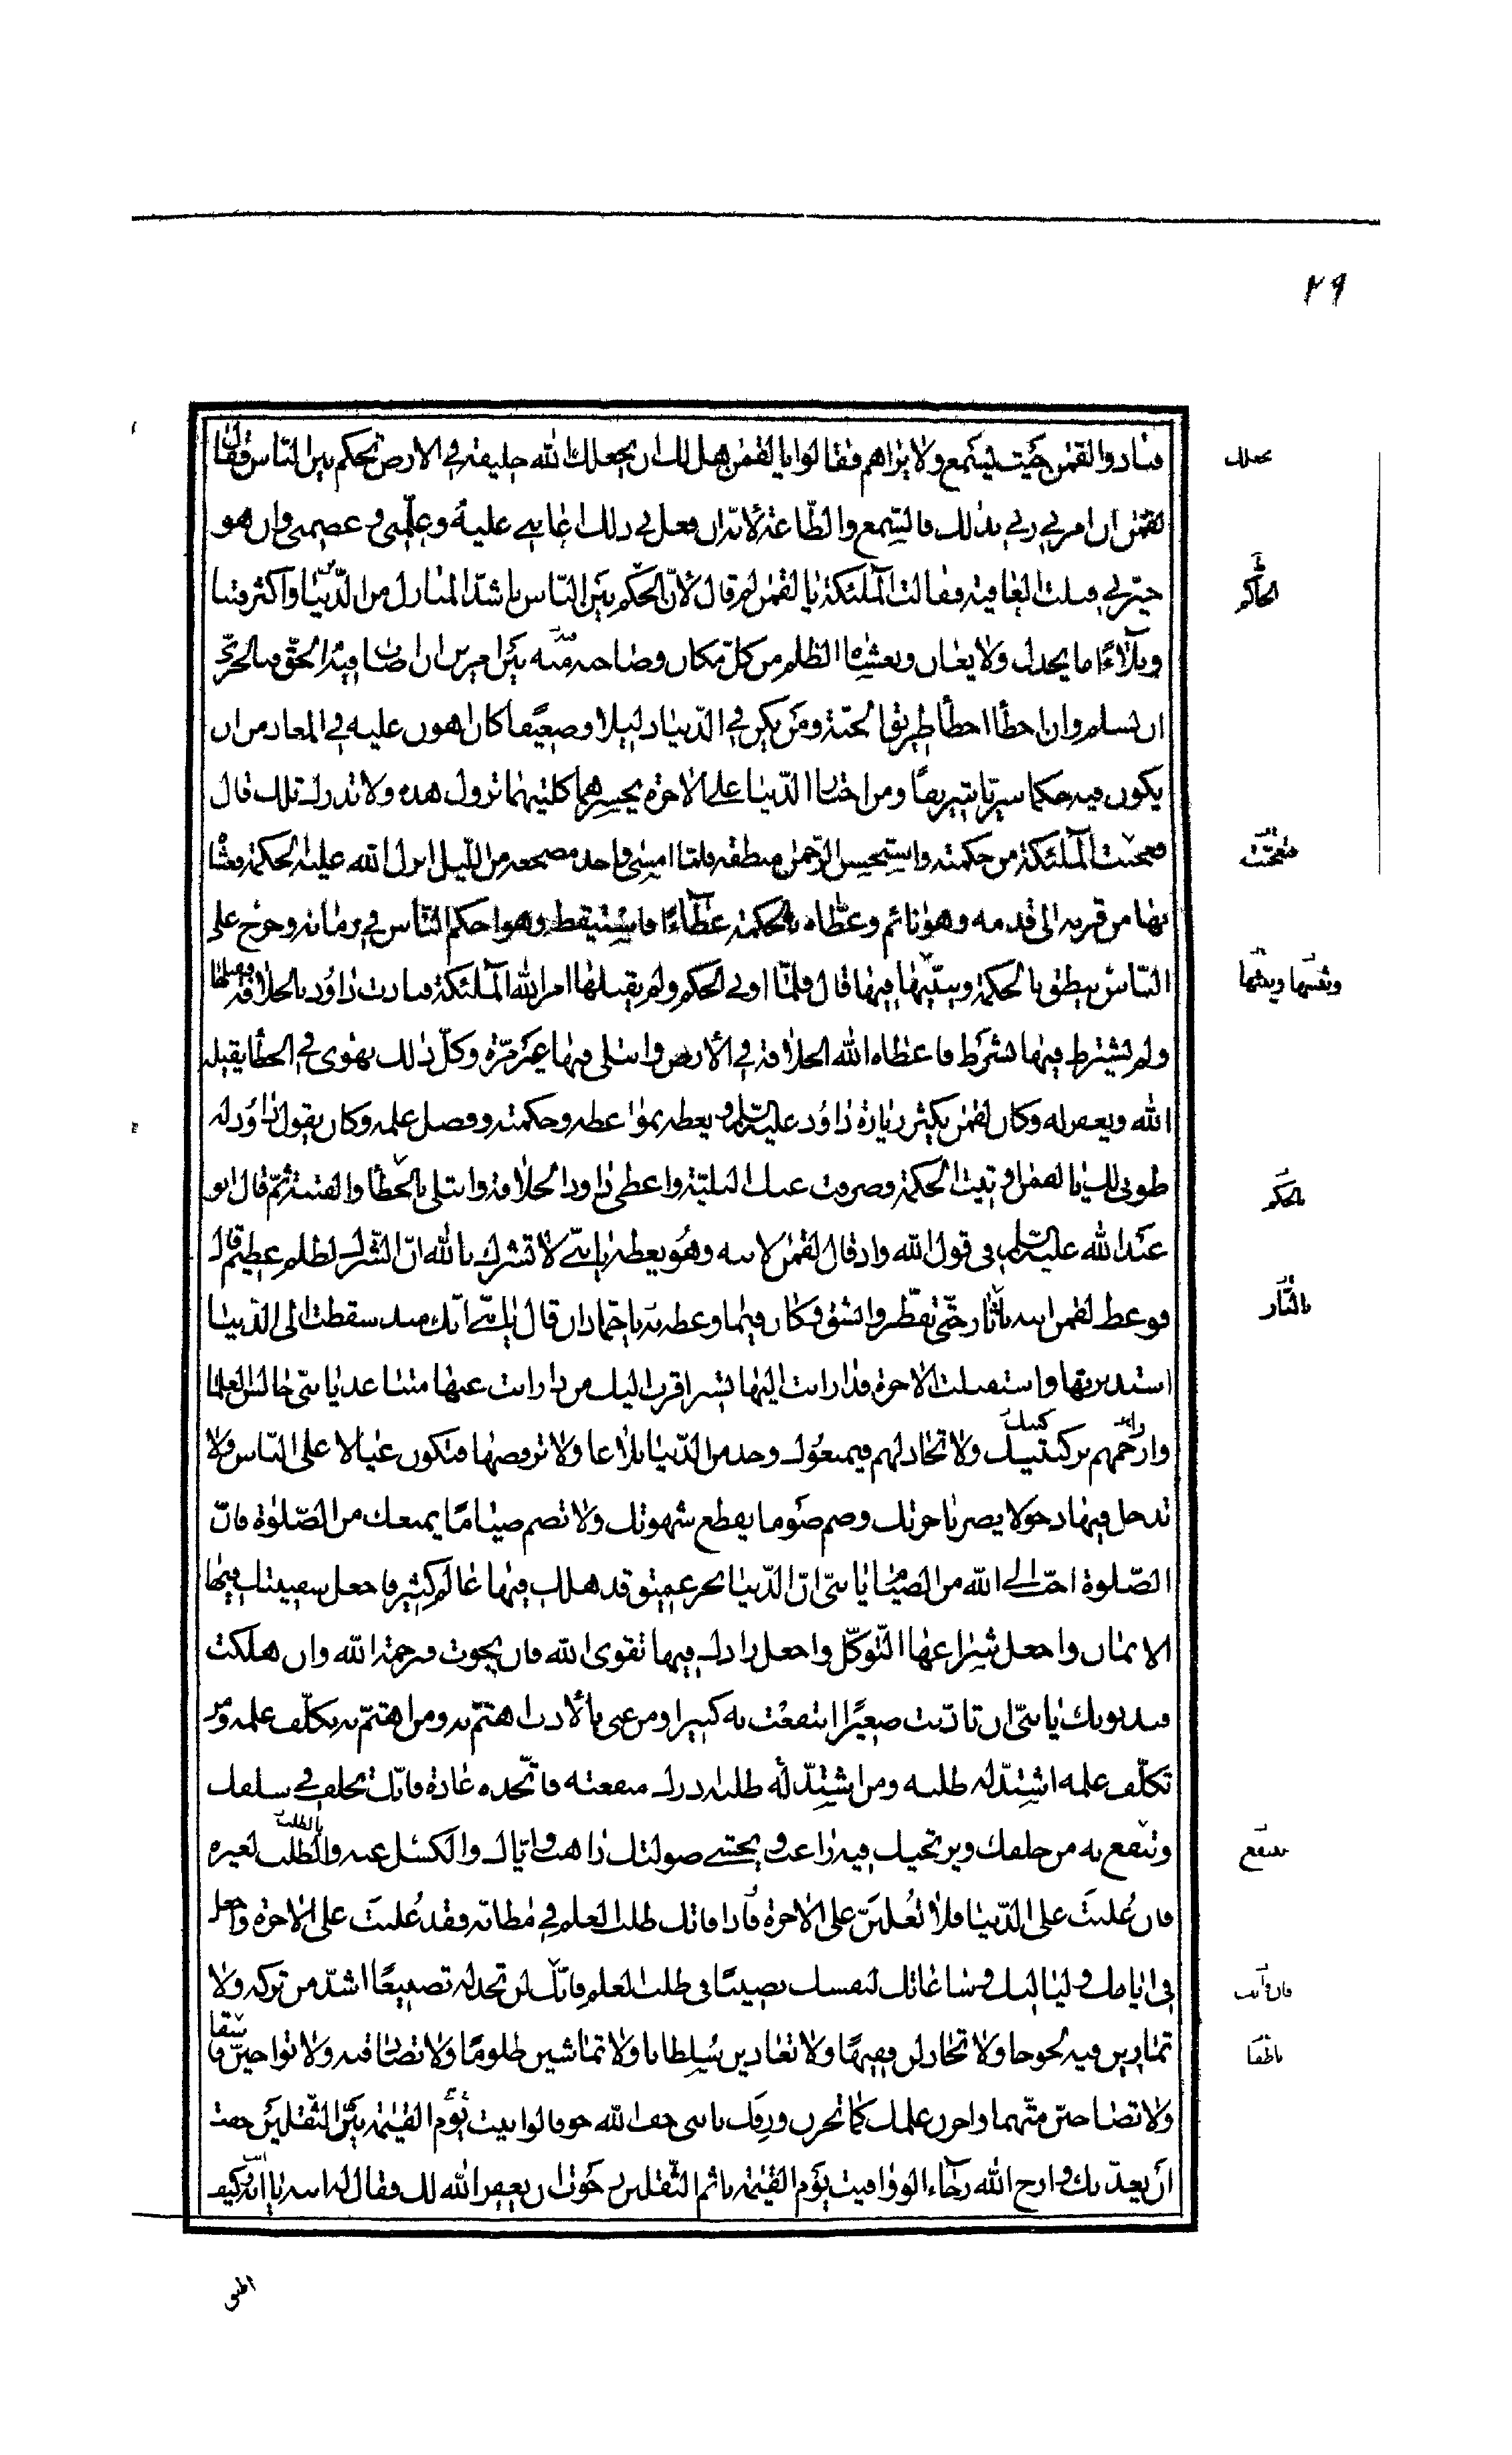 ٢٩
فنادوا لقمٰن حيث يسمع ولا يراهم فقالوا يا لقمٰن هل لك ان يجعلك الله خليفة في الارض تحكم بين الناس فقال
لقمٰن ان امرني ربي بذلك فالسمع والطاعة لانه ان فعل بي ذلك اعانني عليه وعلّمني وعصمني وان هو
خيّرني قبلت العافية فقالت الملئكة يا لقمٰن لم قال لانّ الحكم بين الناس باشدّ المنازل من الدّين واكثر فتنا
وبلاءً ما يخذل ولا يعان ويغشاه الظلم من كلّ مكان وصاحبه منه بين امرين ان اصاب فيه الحقّ فبالحريّ
ان يسلم وان اخطأ اخطأ طريق الجنّة ومن يكن في الدّنيا ذليلا وضعيفا كان اهون عليه في المعاد من ان
يكون فيه حكما سريّا شريفا ومن اختار الدّنيا على الاخرة يخسرهما كلتيهما تزول هذه ولا تدرك تلك قال
فعجبت الملئكة من حكمته واستحسن الرّحمٰن منطقه فلمّا امسى واخذ مضجعه من اللّيل انزل الله عليه الحكمة فغشّا
بها من قرنه الى قدمه وهو نائم وغطّاه بالحكمة غطاءً فاستيقظ وهو احكم النّاس في زمانه وخرج على
النّاس ينطق بالحكمة ويبيّنها فيها قال فلمّا اوتي الحكم ولم يقبلها امر الله الملئكة فنادت داؤد بالخلافة فقبلها
ولم يشترط فيها بشرط فاعطاه الله الخلافة في الارض وابتلي فيها غير مرّة وكلّ ذلك يهوي في الخطأ يقيله
الله ويغفر له وكان لقمٰن يكثر زيارة داؤد عليه السلم ويعظه بمواعظه وحكمته وفضل علمه وكان يقول داؤد له
طوبى لك يا لقمٰن اوتيت الحكمة وصرفت عنك البليّة واعطي داود الخلافة وابتلي بالخطأ والفتنة ثمّ قال ابو
عبد الله عليه السلم في قول الله واذ قال لقمٰن لابنه وهو يعظه يا بنيّ لا تشرك بالله انّ الشّرك لظلم عظيم قال
فوعظ لقمٰن ابنه باثار حتّى تفطّر وانشقّ وكان فيما وعظه به يا حمّاد ان قال يا بنيّ انّك منذ سقطت الى الدّنيا
استدبرتها واستقبلت الاخرة فدار انت اليها تسير اقرب اليك من دار انت عنها متباعد يا بنيّ جالس العلما
وازحمهم بركبتيك ولا تجادلهم فيمنعوك وخذ من الدّنيا بلاغا ولا ترفضها فتكون عيالا على النّاس ولا
تدخل فيها دخولا يضر باخرتك وصم صوما يقطع شهوتك ولا تصم صياما يمنعك من الصّلوٰة فانّ
الصّلوة احبّ الى الله من الصيام يا بنيّ انّ الدّنيا بحر عميق قد هلك فيها عالم كثير فاجعل سفينتك فيها
الايمان واجعل شراعها التّوكّل واجعل زادك فيها تقوى الله فان نجوت فبرحمة الله وان هلكت
فبذنوبك يا بنيّ ان تادّبت صغيرًا انتفعت به كبيرا ومن عنى بالأدب اهتمّ به ومن اهتمّ به تكلّف علمه ومن
تكلّف علمه اشتدّ له طلبه ومن اشتدّ له طلبه ادرك منفعته فاتّخذه عادة فانّك تخلف في سلفك
وتنفع به من خلفك ويرتجيك فيه راغب ويخشى صولتك راهب وايّاك والكسل عنه والطلب لغيره
فان غُلبتَ على الدّنيا فلا تُغلبنّ على الاخرة فاذا فاتك طلب العلم في مظانّه فقد غُلبتَ على الاخرة واجعل
في ايّامك ولياليك وساعاتك لنفسك نصيبًا في طلب العلم فانّك لن تجد له تضييعًا اشدّ من تركه ولا
تمارينّ فيه لجوجا ولا تجادلنّ فقيهًا ولا تعادينّ سُلطانا ولا تماشينّ ظلومًا ولا تصادقنه ولا تواخينّ فاسقا
ولا تصاحبنّ متّهما واخزن علمك كما تخزن ورقك يا بنيّ خف الله خوفا لو اتيت يوم القيٰمة ببرّ الثّقلين خفت
أن يعذّبك وارج الله رجاءً لو وافيت يوم القيٰمة باثم الثّقلين رجوت ان يغفر الله لك فقال له ابنه يا ابه كيف
يجعلك
الحاكم
فتعجّبت
بالحكم
بالنّار
ينتفع
اطيق